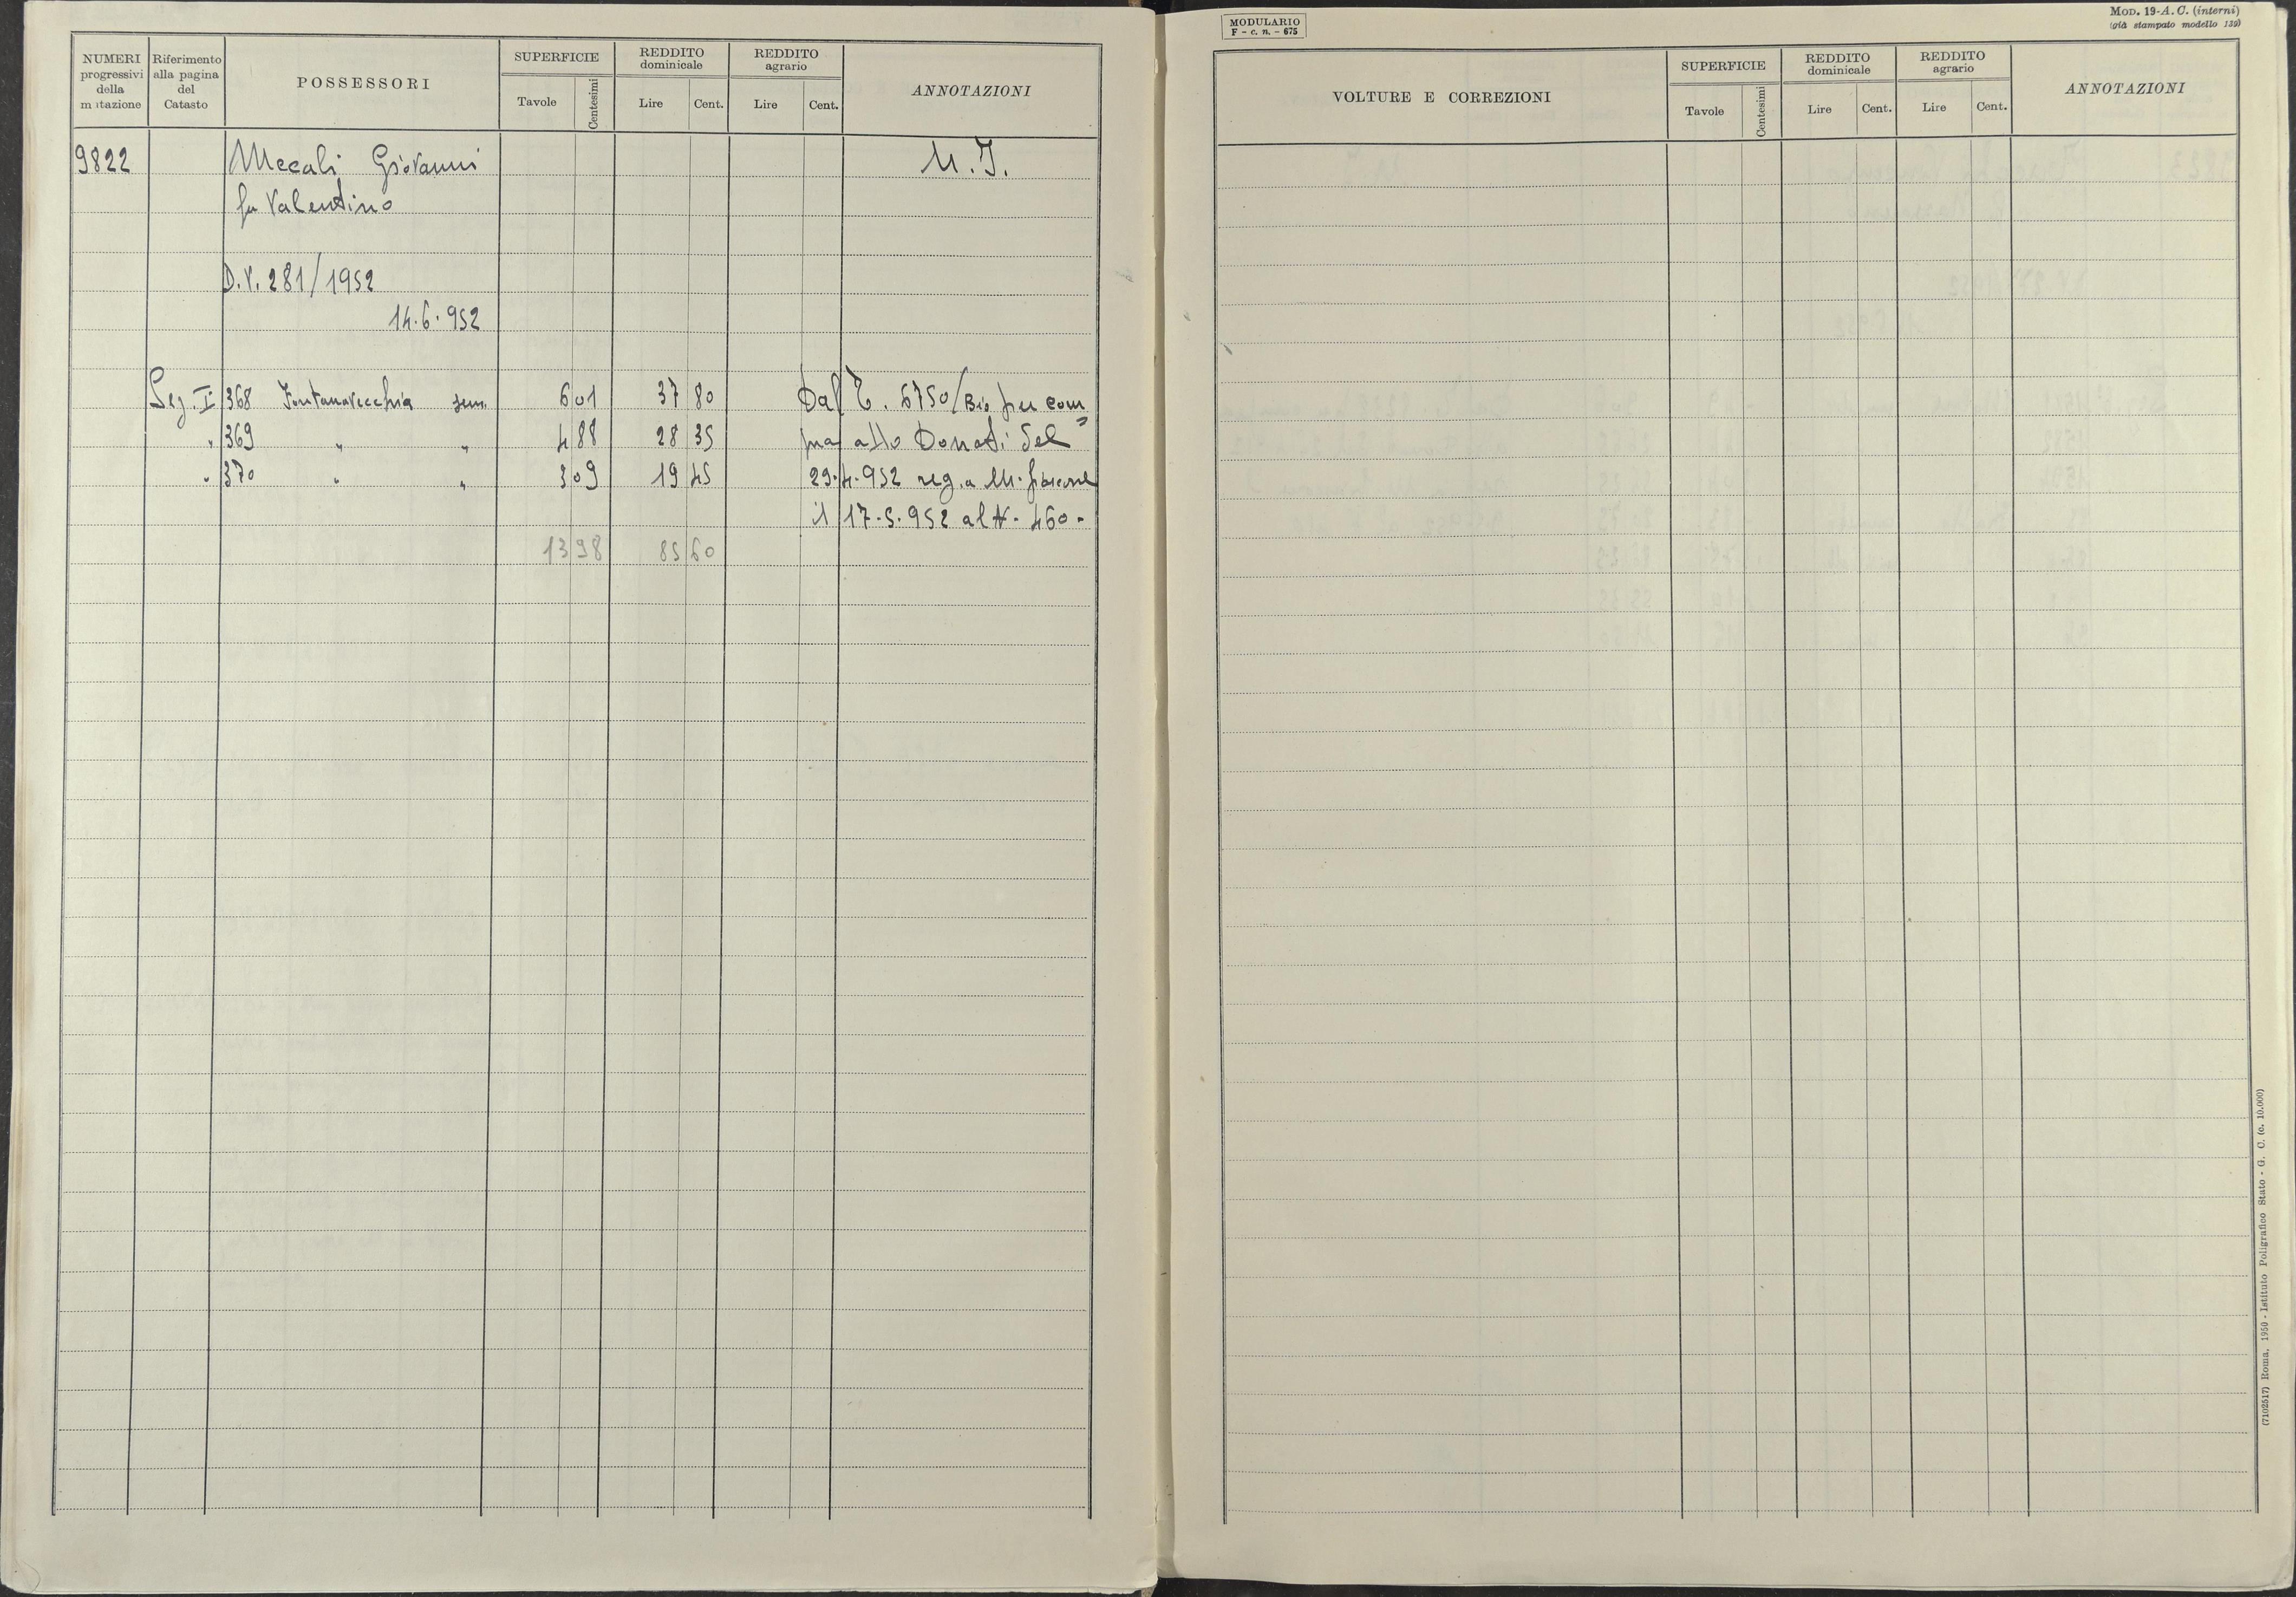 NUMERI progressivi della mutazione | Riferimento alla pagina del Catasto | POSSESSORI | SUPERFICIE Tavole Centesimi | REDDITO dominicale Lire Cent. | REDDITO agrario Lire Cent. | ANNOTAZIONI
9822 Mecali Giovanni M.I.
fu Valentino
D.V. 281/1952
14.6.952
Sez. I 368 Fontanavecchia sem. 6 01 37 80 Dal T. 6750/Bis per com=
" 369 " " 4 88 28 35 pra atto Donati del
" 370 " " 3 09 19 45 29.4.952 reg. a M.
il 17.5.952 al N. 460-
13 98 85 60
MODULARIO
F - c. n. - 675
MOD. 19-A. C. (interni)
(già stampato modello 139)
VOLTURE E CORREZIONI | SUPERFICIE Tavole Centesimi | REDDITO dominicale Lire Cent. | REDDITO agrario Lire Cent. | ANNOTAZIONI
(7102517) Roma, 1950 - Istituto Poligrafico Stato - G. C. (c. 10.000)